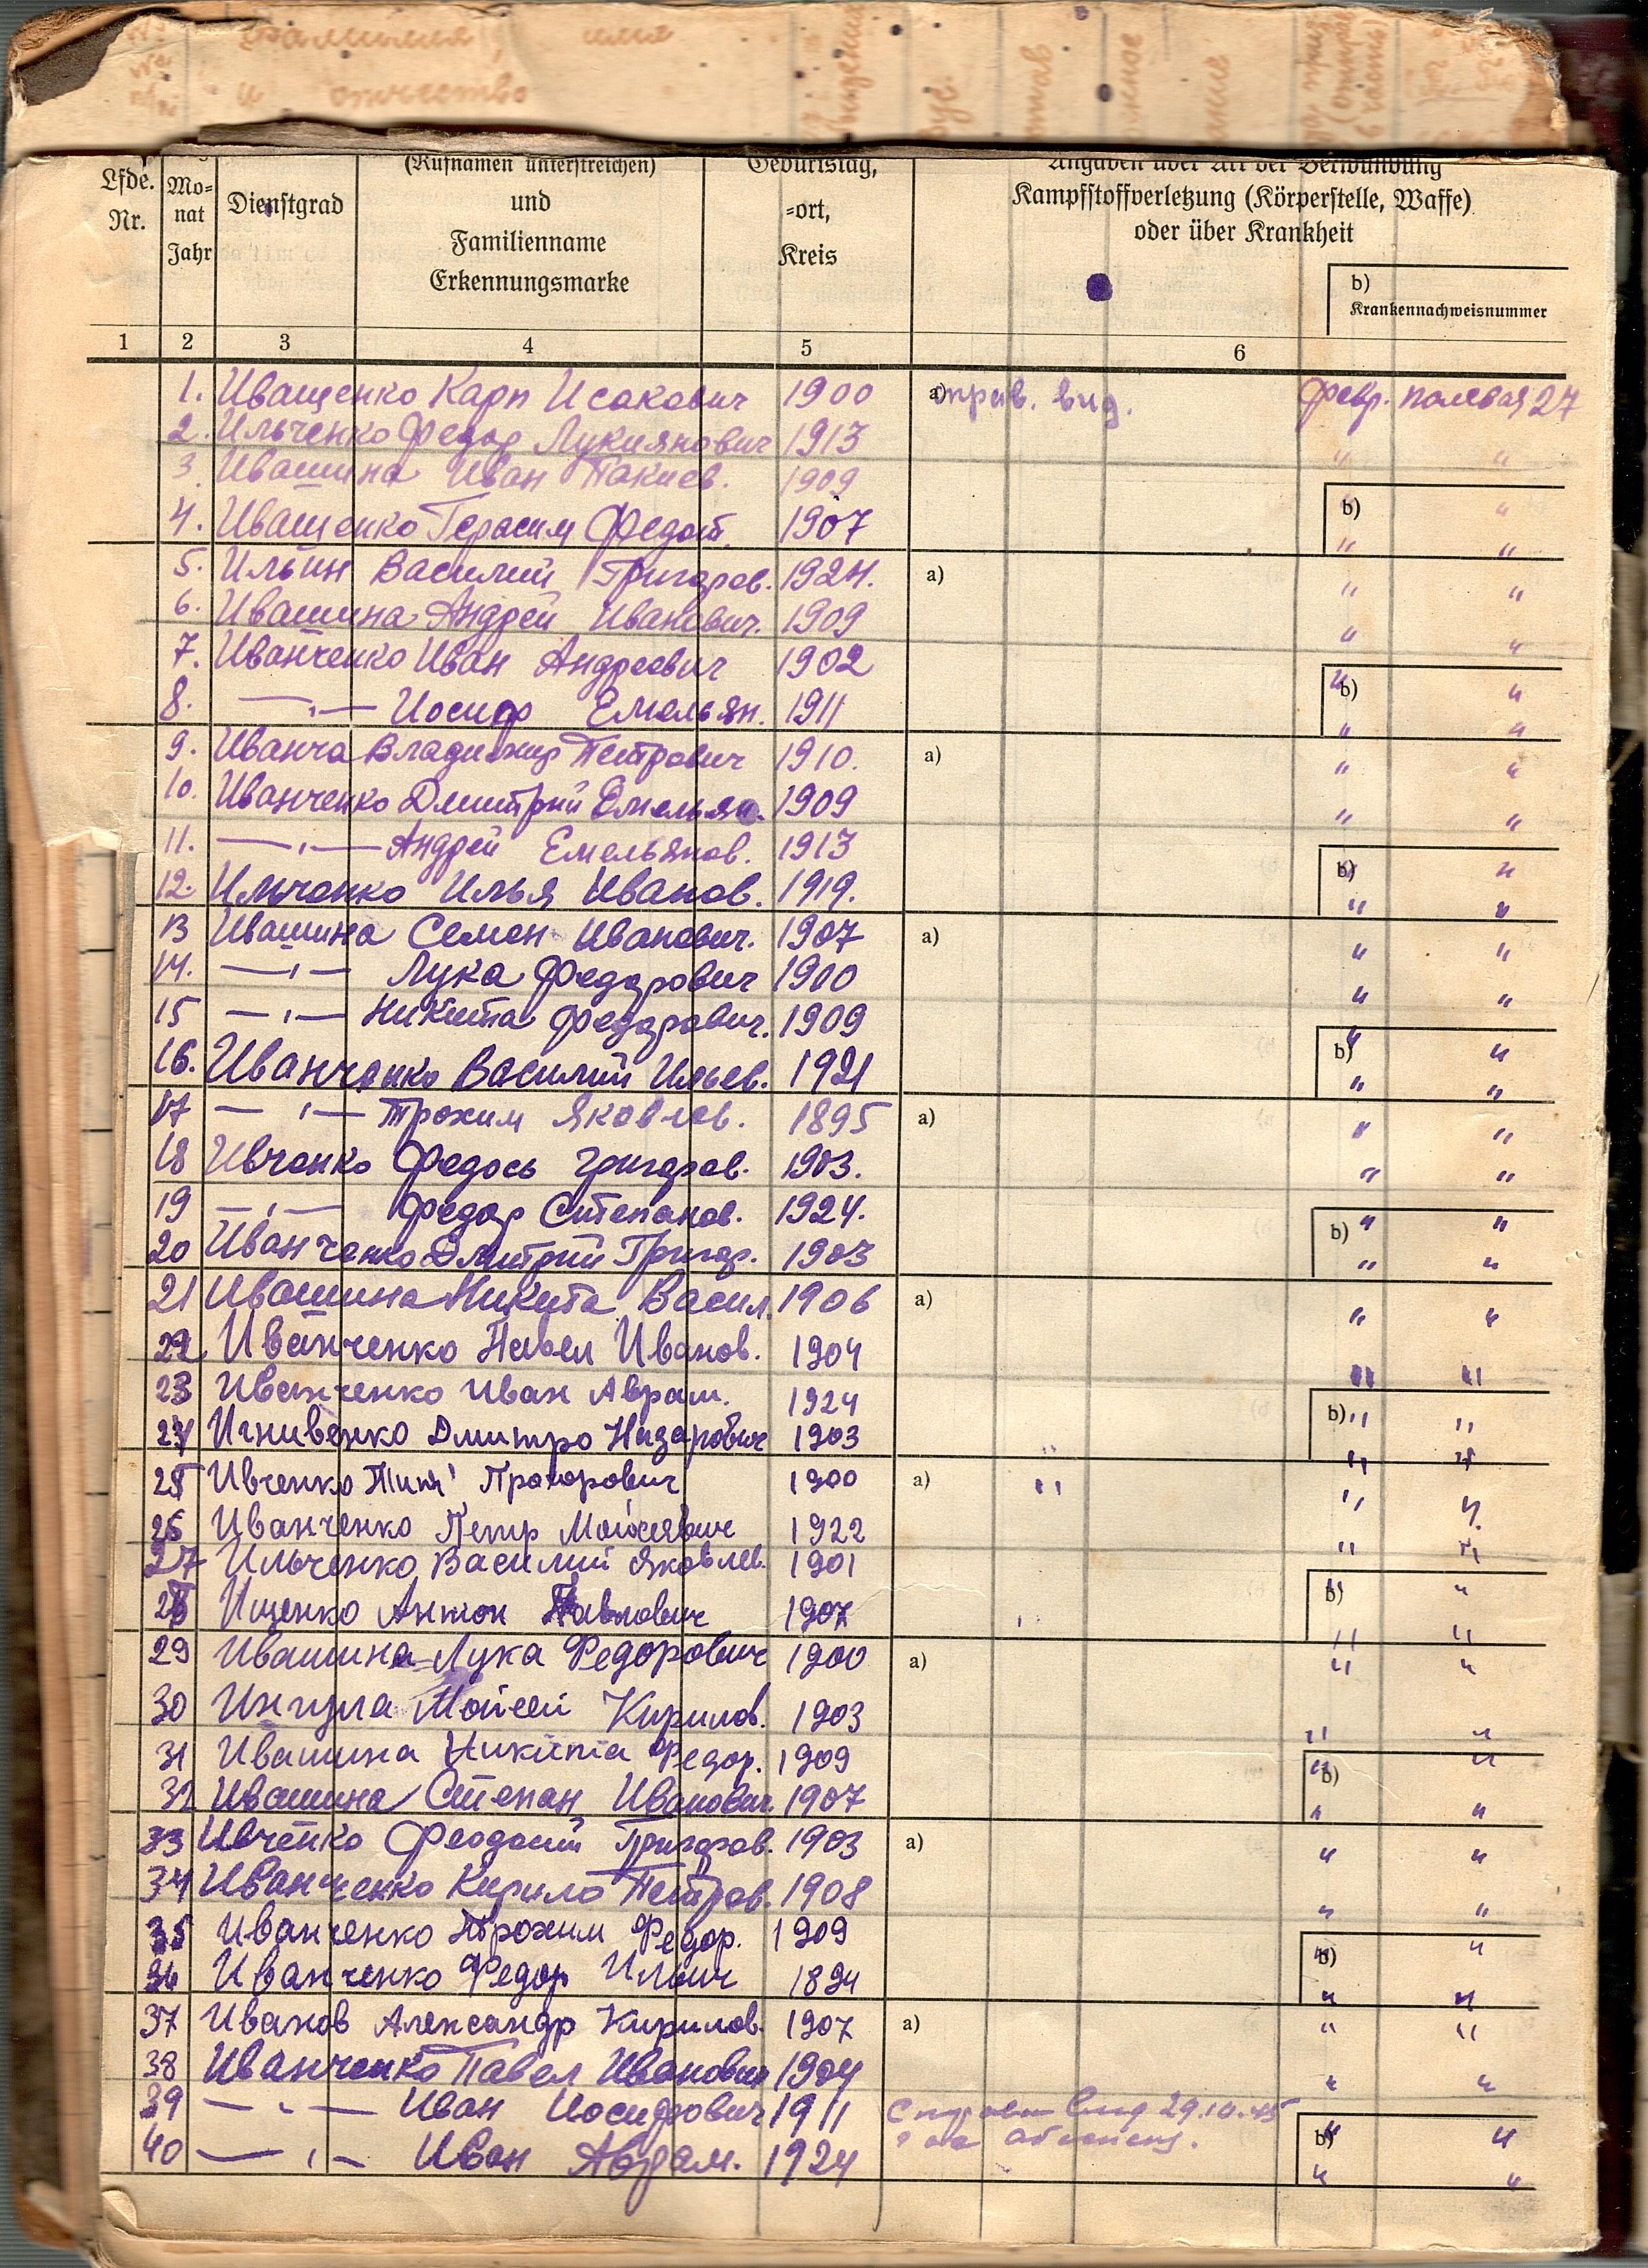 фамилия, имя
и отчество
(Rufnamen unterstreichen)
Geburtstag,
Angaben über Art der Verwundung
Lfde. Nr.
Monat Jahr
Dienstgrad
und
Familienname
Erkennungsmarke
-ort,
Kreis
Kampfstoffverletzung (Körperstelle, Waffe)
oder über Krankheit
b)
Krankennachweisnummer
1 2 3 4 5 6
1. Иващенко Карп Исакович 1900 a) справ. выд. февр. полевая 27
2. Ильченко Федор Лукиянович 1913 " "
3. Ивашина Иван 1909 b) " "
4. Иващенко Герасим Федот. 1907 " "
5. Ильин Василий Григоров. 1924. a) " "
6. Ивашина Андрей Иванович. 1909 " "
7. Иванченко Иван Андреевич 1902 b) " "
8. —"— Иосиф Емельян. 1911 " "
9. Иванча Владимир Петрович 1910. a) " "
10. Иванченко Дмитрий Емельян. 1909 " "
11. —"— Андрей Емельянов. 1913 b) " "
12. Ильченко Илья Иванов. 1919. " "
13 Ивашина Семен Иванович. 1907 a) " "
14. —"— Лука Федорович 1900 " "
15 —"— Никита Федорович. 1909 b) " "
16. Иванченко Василий Ильев. 1921 " "
17 —"— Трохим Яковлев. 1895 a) " "
18 Ивченко Федось Григоров. 1903. " "
19 —"— Федор Степанов. 1924. b) " "
20 Иванченко Дмитрий Григор. 1903 " "
21 Ивашина Никита Васил. 1906 a) " "
22 Иванченко Павел Иванов. 1904 " "
23 Иванченко Иван Аврам. 1924 b) " "
24 Игнивенко Дмитро Назарович 1903 " "
25 Ивченко Прохорович 1900 a) " " "
26 Иванченко Петр Мойсеевич 1922 " "
27 Ильченко Василий Яковлев. 1901 b) " "
28 Ищенко Антон Павлович 1907 " "
29 Ивашина Лука Федорович 1900 a) " "
30 Ингула Мойсей Кирилов. 1903 " "
31 Ивашина Никита Федор. 1909 b) " "
32 Ивашина Степан Иванович 1907 " "
33 Ивченко Феодосий Григоров. 1903 a) " "
34 Иванченко Кирило Петров. 1908 " "
35 Иванченко Трохим Федор. 1909 b) " "
36 Иванченко Федор Ильич 1894 " "
37 Иванов Александр Кирилов. 1907 a) " "
38 Иванченко Павел Иванович 1904 " "
39 —"— Иван Иосифович 1911 Справ 29.10.45 b) " "
40 —"— Иван Аврам. 1924 " "